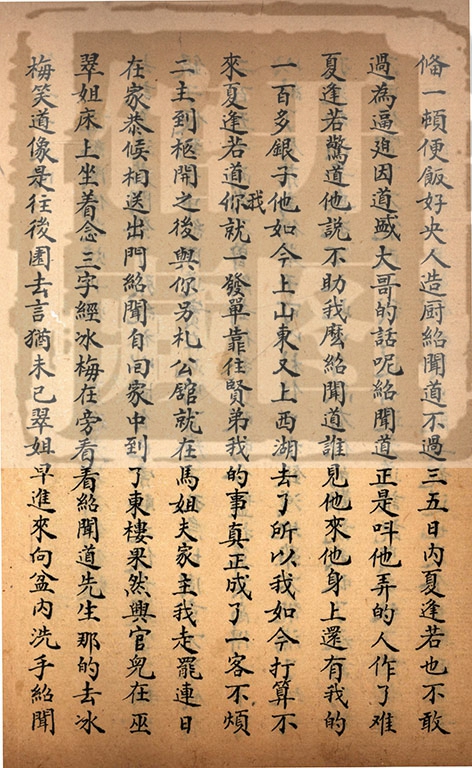 俻一頓便飯好央人造厨紹聞道不過三五日内夏逢若也不敢
過為逼迫因道盛大哥的話呢紹聞道正是呌他弄的人作了难
夏逢若驚道他說不助我麽紹聞道誰見他來他身上還有我的
一百多銀子他如今上山東又上西湖去了所以我如今打算不
來夏逢若道你我就一發單靠住賢弟我的事真正成了一客不煩
二主到柩開之後與你另札公舘就在馬姐夫家主我走罷連日
在家恭候相送出門紹聞自回家中到了東樓果然興官兒在巫
翠姐床上坐着念三字經冰梅在旁看着紹聞道先生那的去冰
梅笑道像是往後園去言猶未已翠姐早進來向盆内洗手紹聞